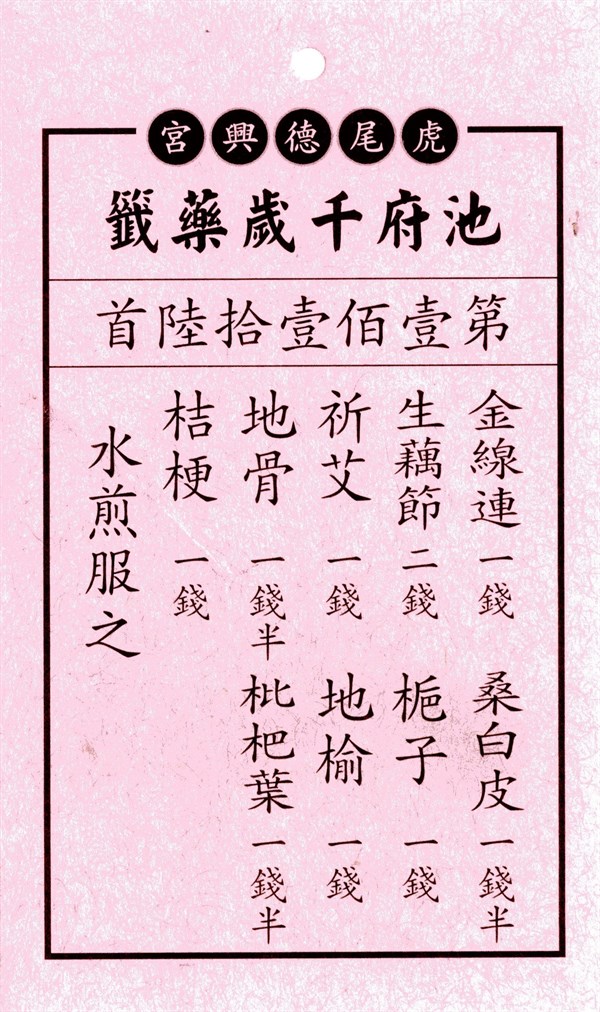 虎尾德興宮
池府千歲藥籤
第壹佰壹拾陸首
金線連 一錢 桑白皮 一錢半
生藕節 二錢 梔子 一錢
祈艾 一錢 地榆 一錢
地骨 一錢半 枇杷葉 一錢半
桔梗 一錢
水煎服之